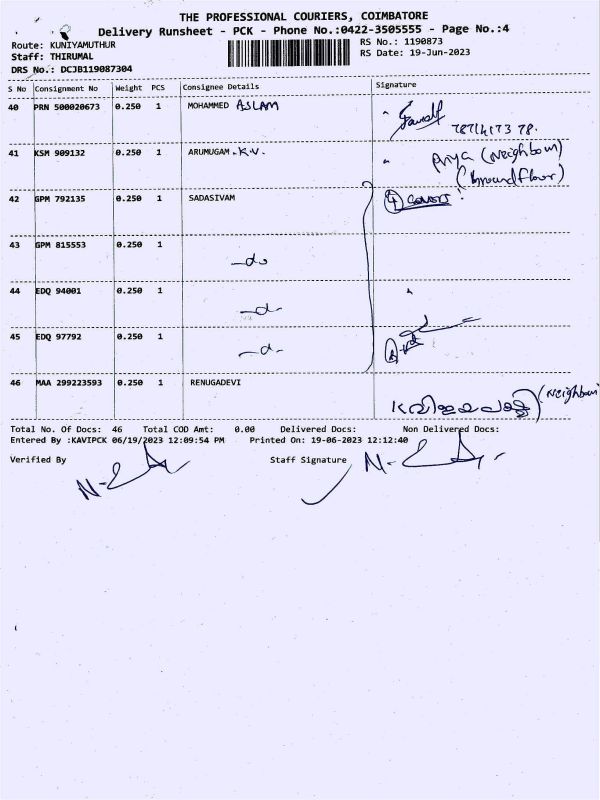 THE PROFESSIONAL COURIERS, COIMBATORE
Delivery Runsheet - PCK - Phone No.:0422-3505555 - Page No.:4
Route: KUNIYAMUTHUR
RS No.: 1190873
Staff: THIRUMAL
RS Date: 19-Jun-2023
DRS No.: DCJB119087304
S No Consignment No Weight PCS Consignee Details Signature
40 PRN 500020673 0.250 1 MOHAMMED ASLAM
41 KSM 909132 0.250 1 ARUMUGAM .K.V. Priya (Neighbour)
(Ground floor)
42 GPM 792135 0.250 1 SADASIVAM 4
43 GPM 815553 0.250 1 -do
44 EDQ 94001 0.250 1 -d-
45 EDQ 97792 0.250 1 -d-
46 MAA 299223593 0.250 1 RENUGADEVI (Neighbour
Total No. Of Docs: 46 Total COD Amt: 0.00 Delivered Docs: Non Delivered Docs:
Entered By :KAVIPCK 06/19/2023 12:09:54 PM Printed On: 19-06-2023 12:12:40
Verified By Staff Signature